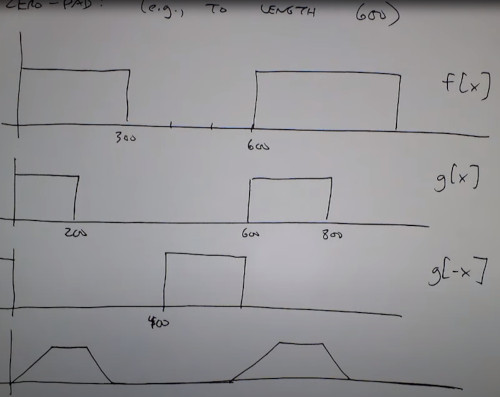 ZERO-PAD: (e.g., TO LENGTH 600)
f[x]
300 600
g[x]
200 600 800
g[-x]
400